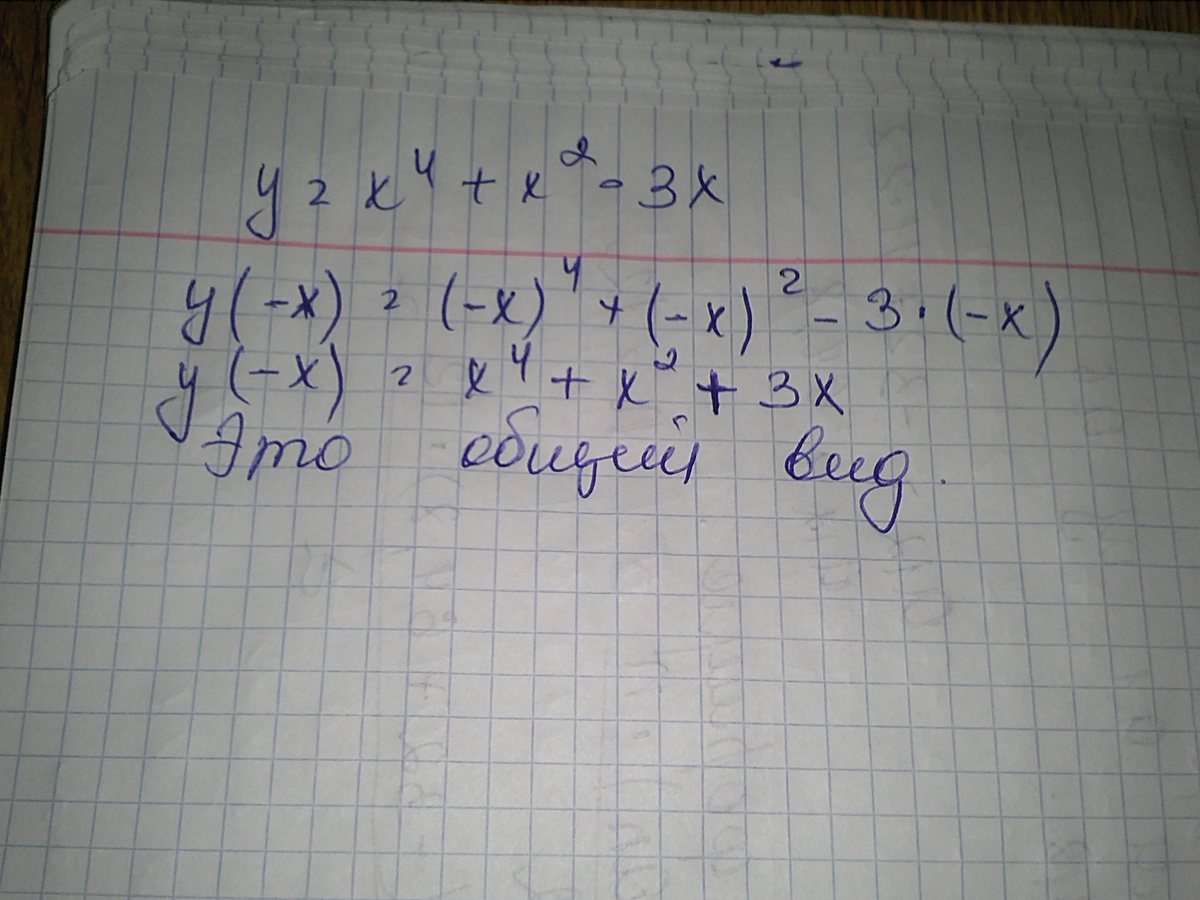 y = x⁴ + x² - 3x
y(-x) = (-x)⁴ + (-x)² - 3·(-x)
y(-x) = x⁴ + x² + 3x
Это общий вид.